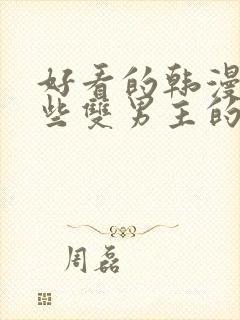 好看的韩漫
些雙男主的
周磊